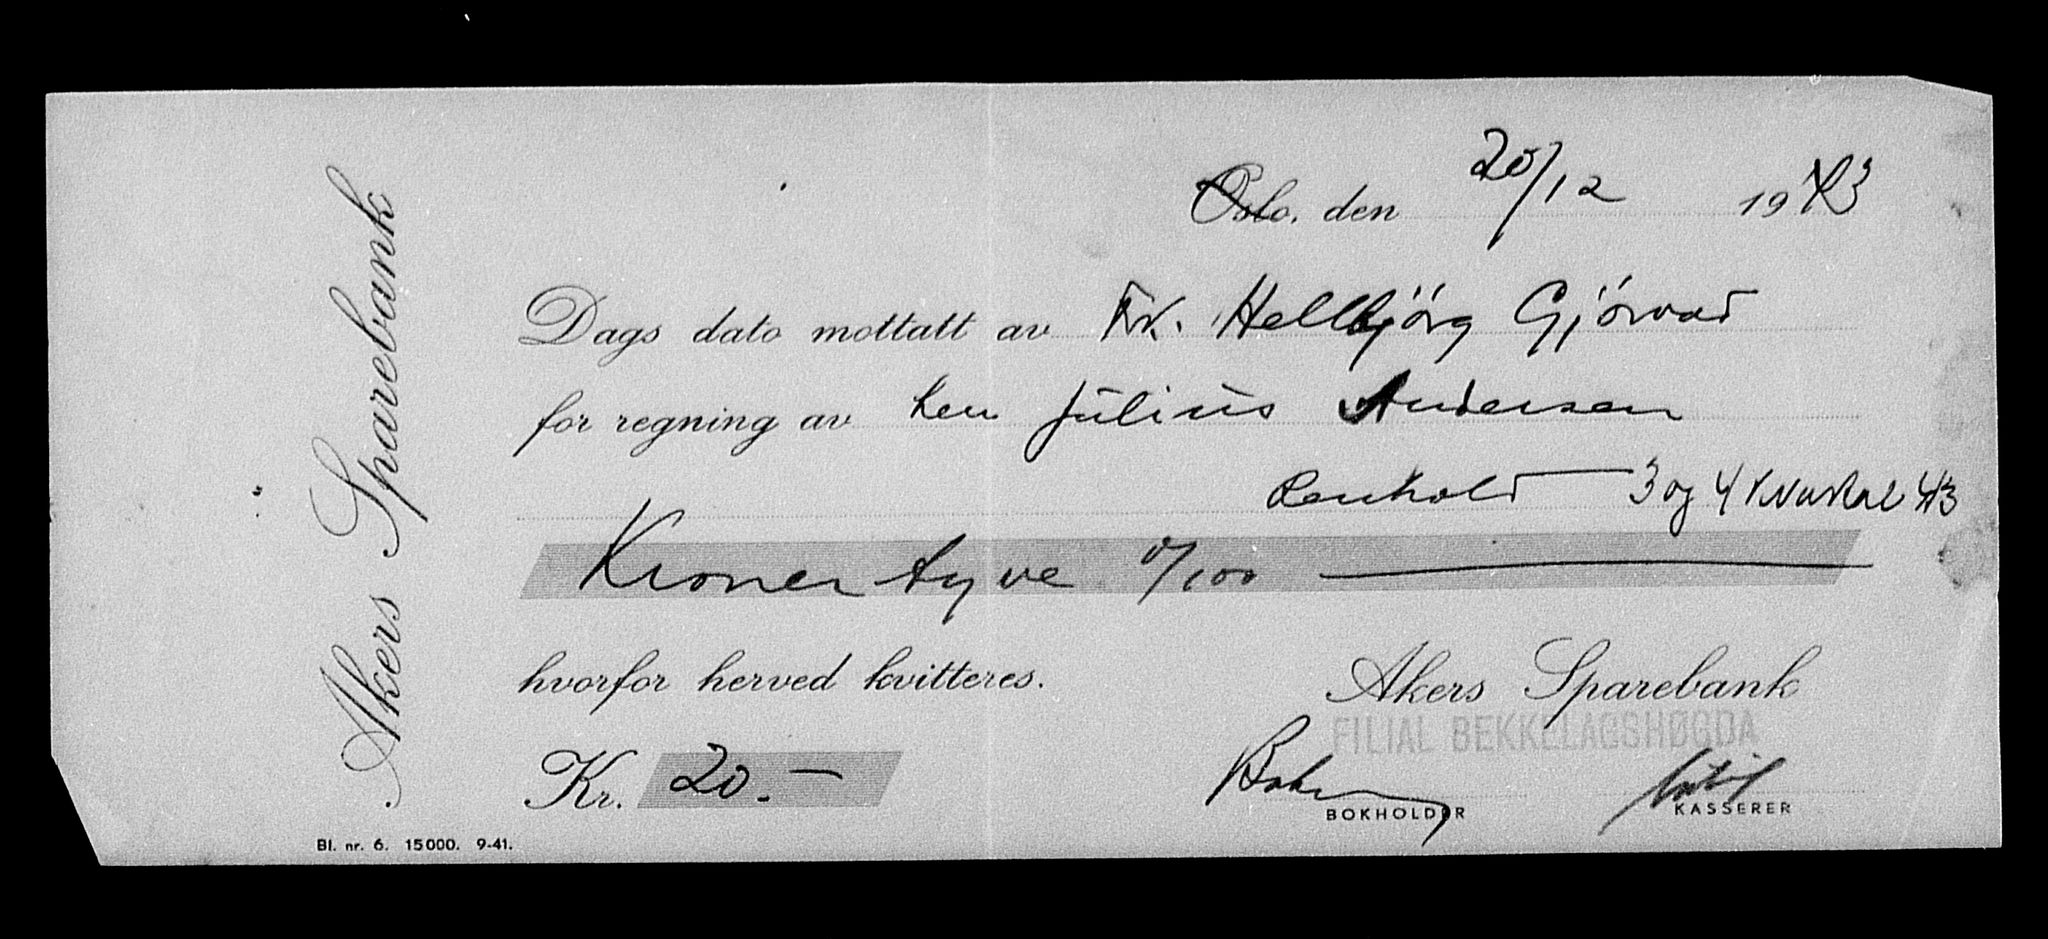 Akers Sparebank
Oslo, den 20/12 1943
Dags dato mottatt av Frk. Hellbjörg Gjörvad
for regning av herr Julius Andersen
Renhold — 3 og 4 kvartal 43
Kroner tyve 0/100
hvorfor herved kvitteres.
Akers Sparebank
FILIAL BEKKELAGSHØGDA
Kr. 20.—
BOKHOLDER
KASSERER
Bl. nr. 6. 15000. 9-41.